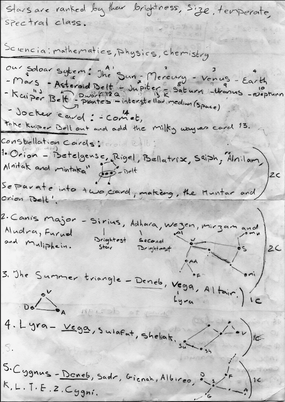 Stars are ranked by their brightness, size, temperature,
spectral class.
Sciencia: mathematics, physics, chemistry
our solar system: The Sun - Mercury - Venus - Earth
- Mars - Asteroid Belt - Jupiter - Saturn - Uranus - Neptun
- Kuiper Belt - interstellar medium (space)
- Jocker card: - Comet,
Take Kuiper Belt out and add the milky way as card 13.
Constellation Cards:
1. Orion - Betelgeuse, Rigel, Bellatrix, Saiph, Alnilam,
Alnitak and Mintaka
Belt
2C
Separate into two card, making, the Huntar and
Orion Belt.
2. Canis Major - Sirius, Adhara, Wezen, Mirzam and
Aludra, Furud
and Muliphein.
Brightest Star
Second Brightest
2C
3. The Summer triangle - Deneb, Vega, Altair.
Lyra
1C
V
D
A
4. Lyra - Vega, Sulafat, Sheliak.
1C
5. Cygnus - Deneb, Sadr, Gienah, Albireo,
K, L, T, E, Z Cygni.
1C